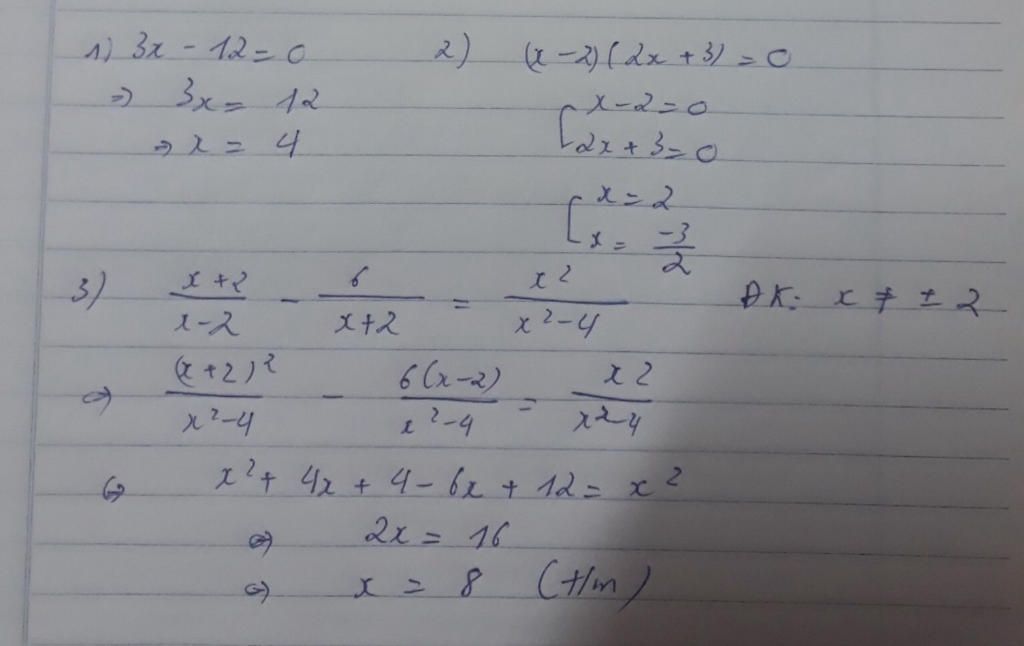 1) 3x - 12 = 0
⇒ 3x = 12
⇒ x = 4
2) (x-2)(2x+3) = 0
[ x-2=0
2x+3=0
[ x = 2
x = -3/2
3) (x+2)/(x-2) - 6/(x+2) = x²/(x²-4) ĐK: x ≠ ±2
⇔ (x+2)²/(x²-4) - 6(x-2)/(x²-4) = x²/(x²-4)
⇔ x² + 4x + 4 - 6x + 12 = x²
⇔ 2x = 16
⇔ x = 8 (t/m)